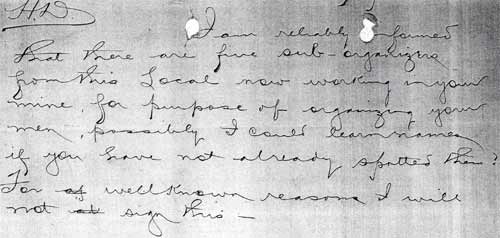 H.D.
I am reliably informed
that there are five sub-organizers
from this Local now working in your
mine, for purpose of organizing your
men, possibly I could learn names
if you have not already spotted them?
For of well known reasons I will
not at sign this -